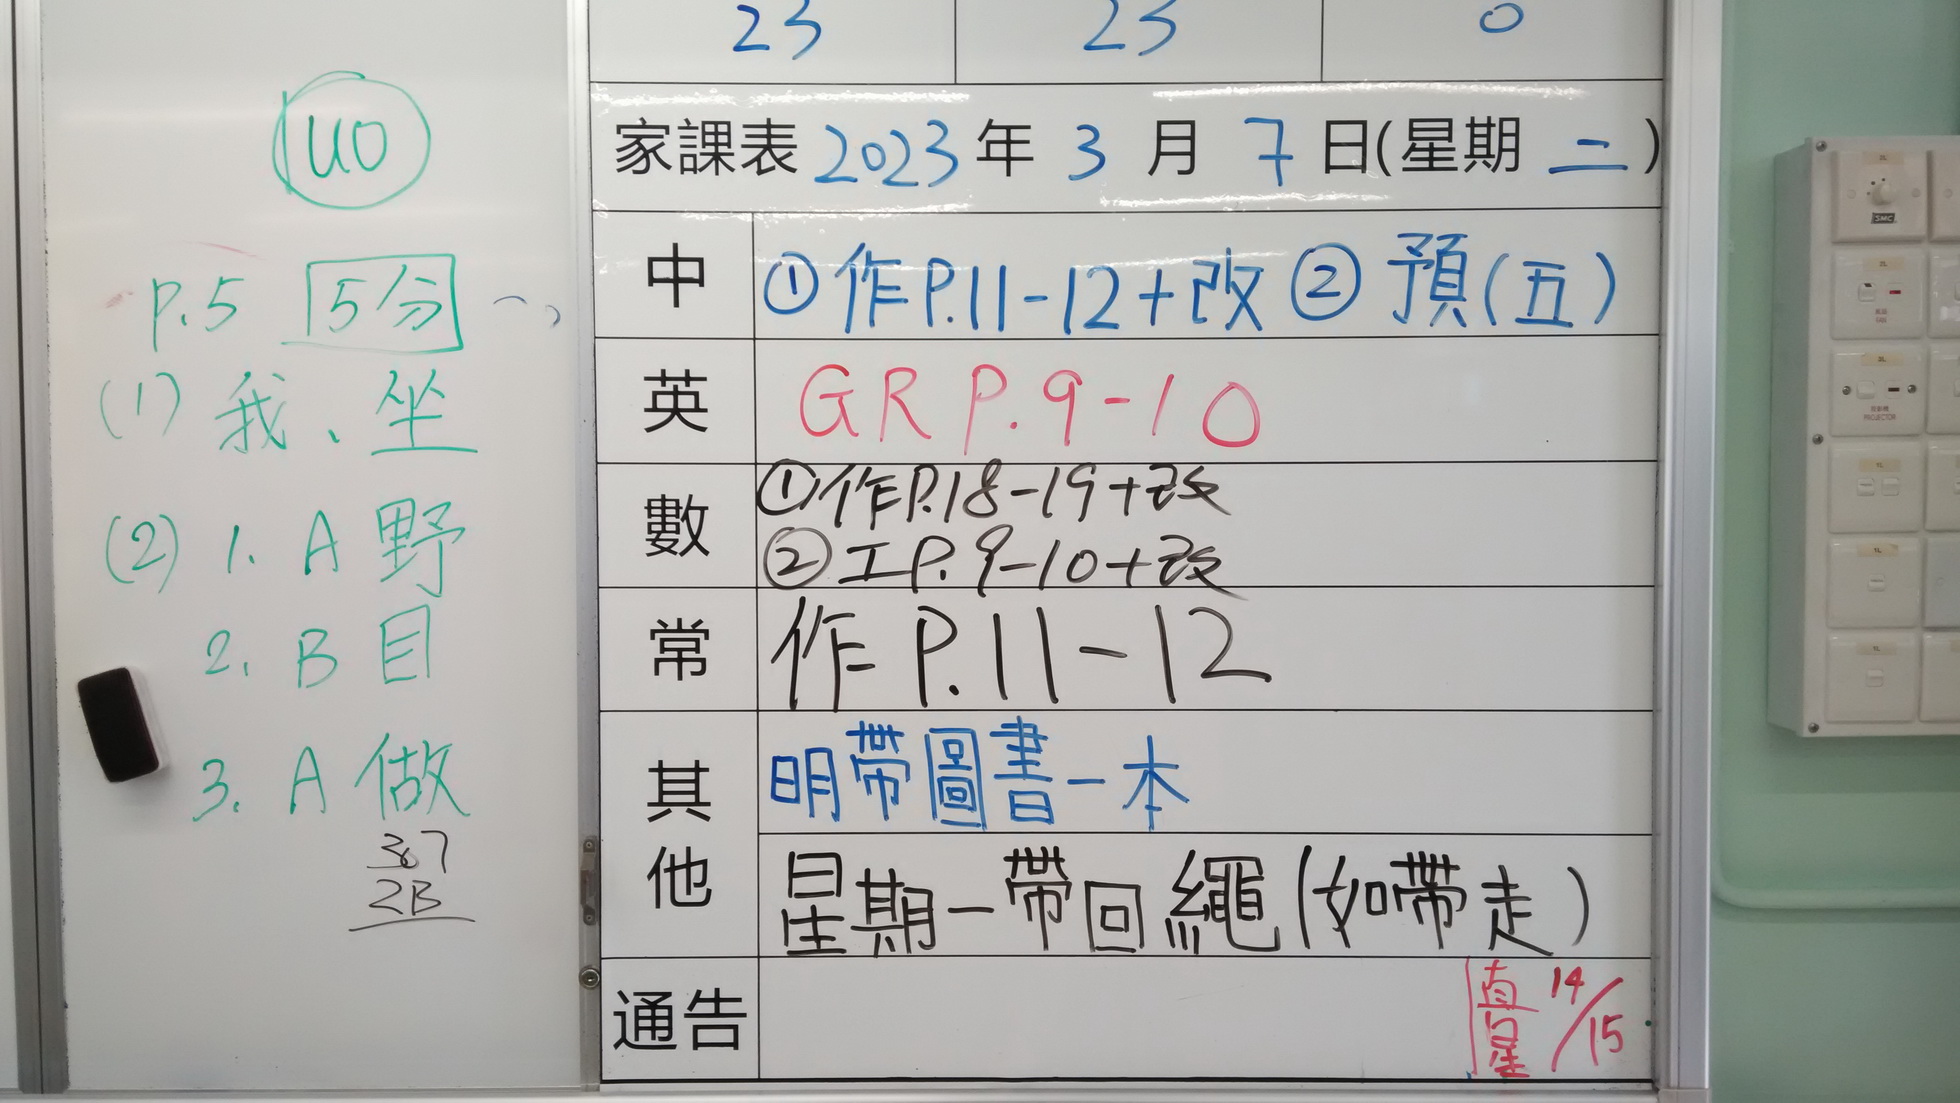 UO
P.5 5分
(1) 我、坐
(2) 1. A 野
2. B 目
3. A 做
307
2B
23 23 0
家課表 2023 年 3 月 7 日(星期 二)
中 ①作P.11-12+改 ② 預(五)
英 GR P.9-10
數 ①作P.18-19+改
②工P.9-10+改
常 作 P.11-12
其他 明帶圖書一本
星期一帶回繩(如帶走)
通告
直星 14/15
SMC
PROJECTOR